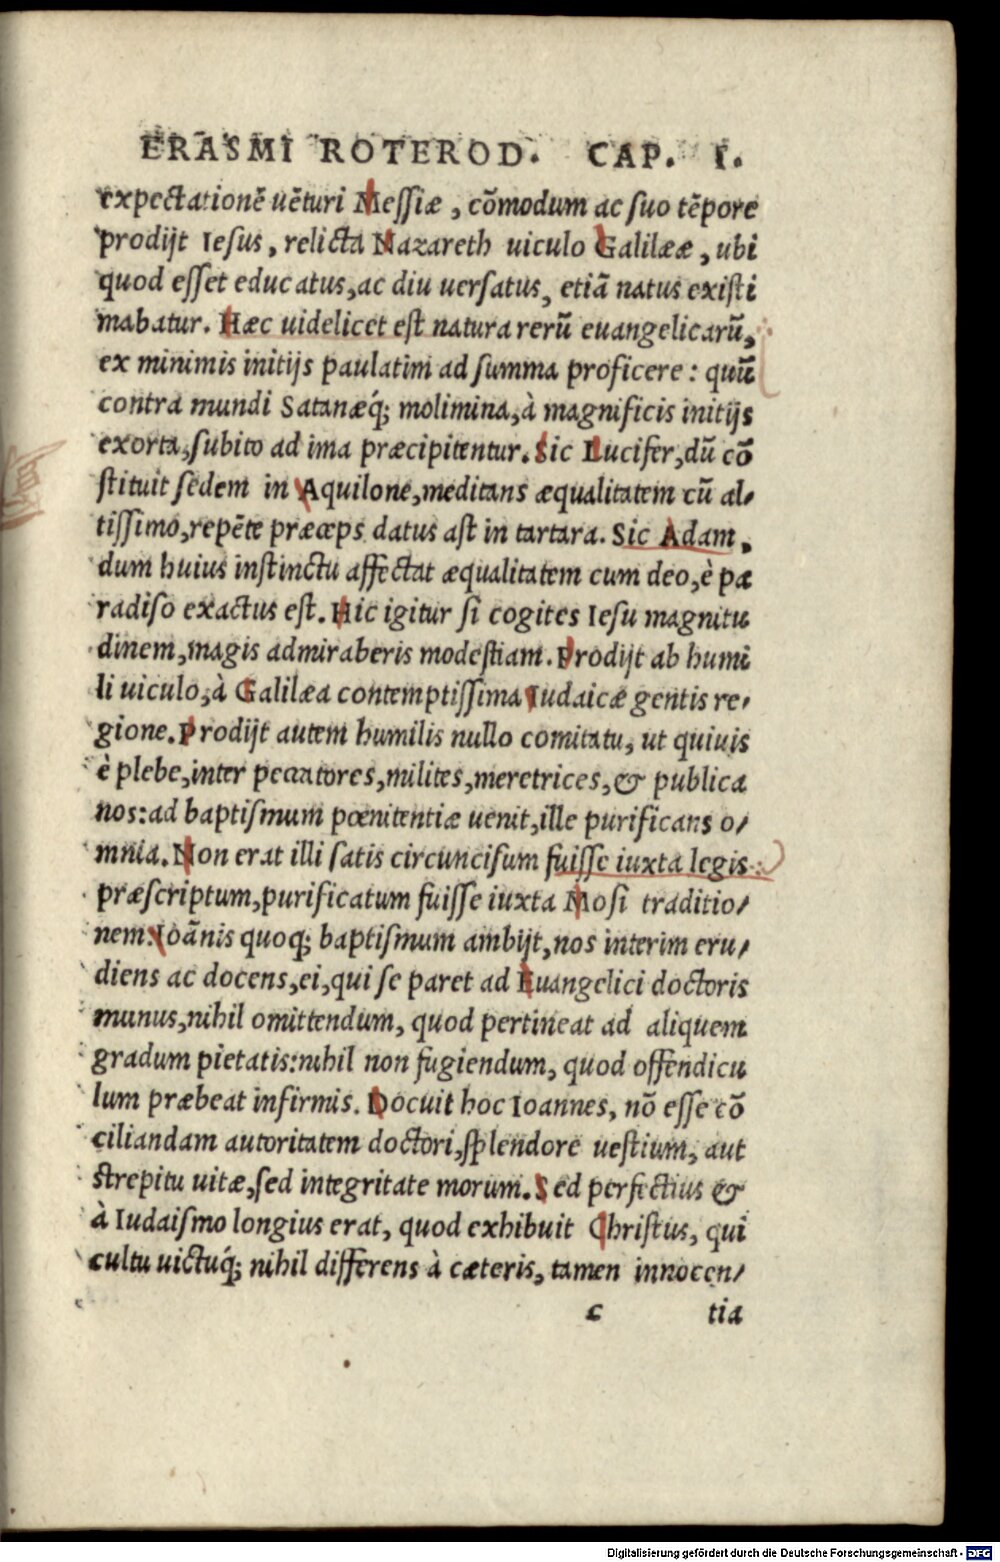 ERASMI ROTEROD. CAP. I.
expectationē uēturi Messiæ, cōmodum ac suo tēpore
prodijt Iesus, relicta Nazareth uiculo Galilææ, ubi
quod esset educatus, ac diu uersatus, etiā natus existi
mabatur. Hæc uidelicet est natura rerū euangelicarū,
ex minimis initijs paulatim ad summa proficere: quū
contra mundi Satanæq́; molimina, à magnificis initijs
exorta, subito ad ima præcipitentur. Sic Lucifer, dū cō
stituit sedem in Aquilone, meditans æqualitatem cū al-
tissimo, repēte præceps datus ast in tartara. Sic Adam,
dum huius instinctu affectat æqualitatem cum deo, è pa
radiso exactus est. Hic igitur si cogites Iesu magnitu
dinem, magis admiraberis modestiam. Prodijt ab humi
li uiculo, à Galilæa contemptissima Iudaicæ gentis re-
gione. Prodijt autem humilis nullo comitatu, ut quiuis
è plebe, inter peccatores, milites, meretrices, & publica
nos: ad baptismum pœnitentiæ uenit, ille purificans o-
mnia. Non erat illi satis circuncisum fuisse iuxta legis
præscriptum, purificatum fuisse iuxta Mosi traditio-
nem: Ioānis quoq; baptismum ambijt, nos interim eru-
diens ac docens, ei, qui se paret ad Euangelici doctoris
munus, nihil omittendum, quod pertineat ad aliquem
gradum pietatis: nihil non fugiendum, quod offendicu
lum præbeat infirmis. Docuit hoc Ioannes, nō esse cō
ciliandam autoritatem doctori, splendore uestium, aut
strepitu uitæ, sed integritate morum. Sed perfectius &
à Iudaismo longius erat, quod exhibuit Christus, qui
cultu uictuq́; nihil differens à cæteris, tamen innocen-
c tia
Digitalisierung gefördert durch die Deutsche Forschungsgemeinschaft - DFG